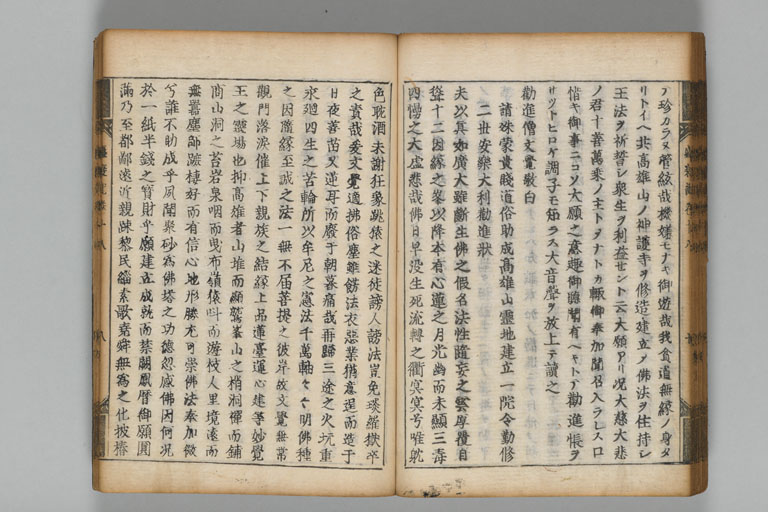 珍カラヌ管絃哉機嫌モナキ御遊哉我貪道無縁ノ身タ
リトイヘ共高雄山ノ神護寺ヲ修造建立メ佛法ヲ住持シ
王法ヲ祈誓シ衆生ヲ利益セント云大願アリ况大慈大悲
ノ君十善萬乗ノ主トメナトカ輙御奉加聞召入ラレスロ
惜キ御事ニコソ大願之意趣御聽聞有ヘキトテ勸進帳ヲ
サツトヒロケ調子モ知ラス大音聲ヲ放上テ讀之
勸進僧文覺敬白
請殊蒙貴賤道俗助成高雄山靈地建立一院令勤修
二世安樂大利勸進狀
夫以真如廣大雖斷生佛之假名法性隨妄之雲厚覆自
聳十二因縁之峯以降本有心蓮之月光幽而未顯三毒
四慢之大虚悲哉佛日早没生死流轉之衢冥冥兮唯耽
色耽酒未謝狂象跳猿之迷徒謗人謗法豈免琰羅獄卒
之責哉爰文覺適拂俗塵雖餝法衣惡業猶意逞而造于
日夜善苗又逆耳而廢于朝暮痛哉再歸三途之火坑重
永廻四生之苦輪所以牟尼之憲法千萬軸々々明佛種
之因隨縁至誠之法一無不届菩提之彼岸故文覺無常
觀門落淚催上下親族之結縁上品蓮臺運心建等妙覺
王之靈場也抑高雄者山堆而顯鷲峯山之梢洞禪而鋪
商山洞之苔岩泉咽而曳布嶺猿叫而遊枝人里境遠而
無囂塵師蹠棲好而有信心地形勝尤可崇佛法奉加微
兮誰不助成乎夙聞聚砂為佛塔之功德忽感佛因何况
於一紙半錢之寳財乎願建立成就而禁闕鳳暦御願圓
滿乃至都鄙遠近親踈黎民緇素歌堯舜無為之化披椿